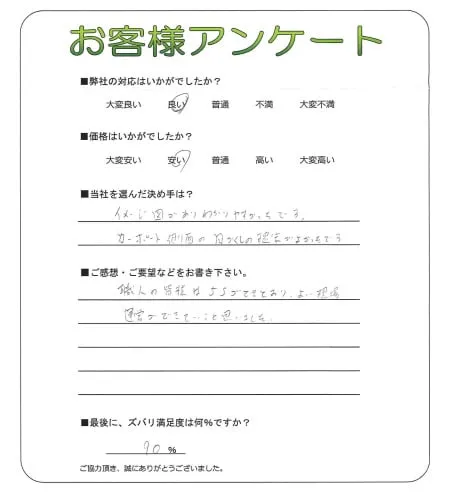 お客様アンケート
■弊社の対応はいかがでしたか?
大変良い 良い 普通 不満 大変不満
■価格はいかがでしたか?
大変安い 安い 普通 高い 大変高い
■当社を選んだ決め手は?
イメージ図がありわかりやすかったです。
カーポート側面の目かくしの提案がよかったです
■ご感想・ご要望などをお書き下さい。
職人の皆様は5Sができており、よい現場
運営ができていると思いました。
■最後に、ズバリ満足度は何%ですか?
90 %
ご協力頂き、誠にありがとうございました。